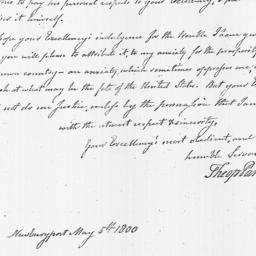 to pay his personal respects to your Excellency,
it himself.
hope your Excellency's indulgence for the trouble I have
you will please to attribute it, to my anxiety for the prosperity
own country — an anxiety, which sometimes oppresses me,
look at what may be the fate of the United States. But your
not do me justice, unless by the persuasion that I am
with the utmost respect & sincerity,
Your Excellency's most obedient, and
humble Serv
Theop Par
Newburyport May 5th 1800